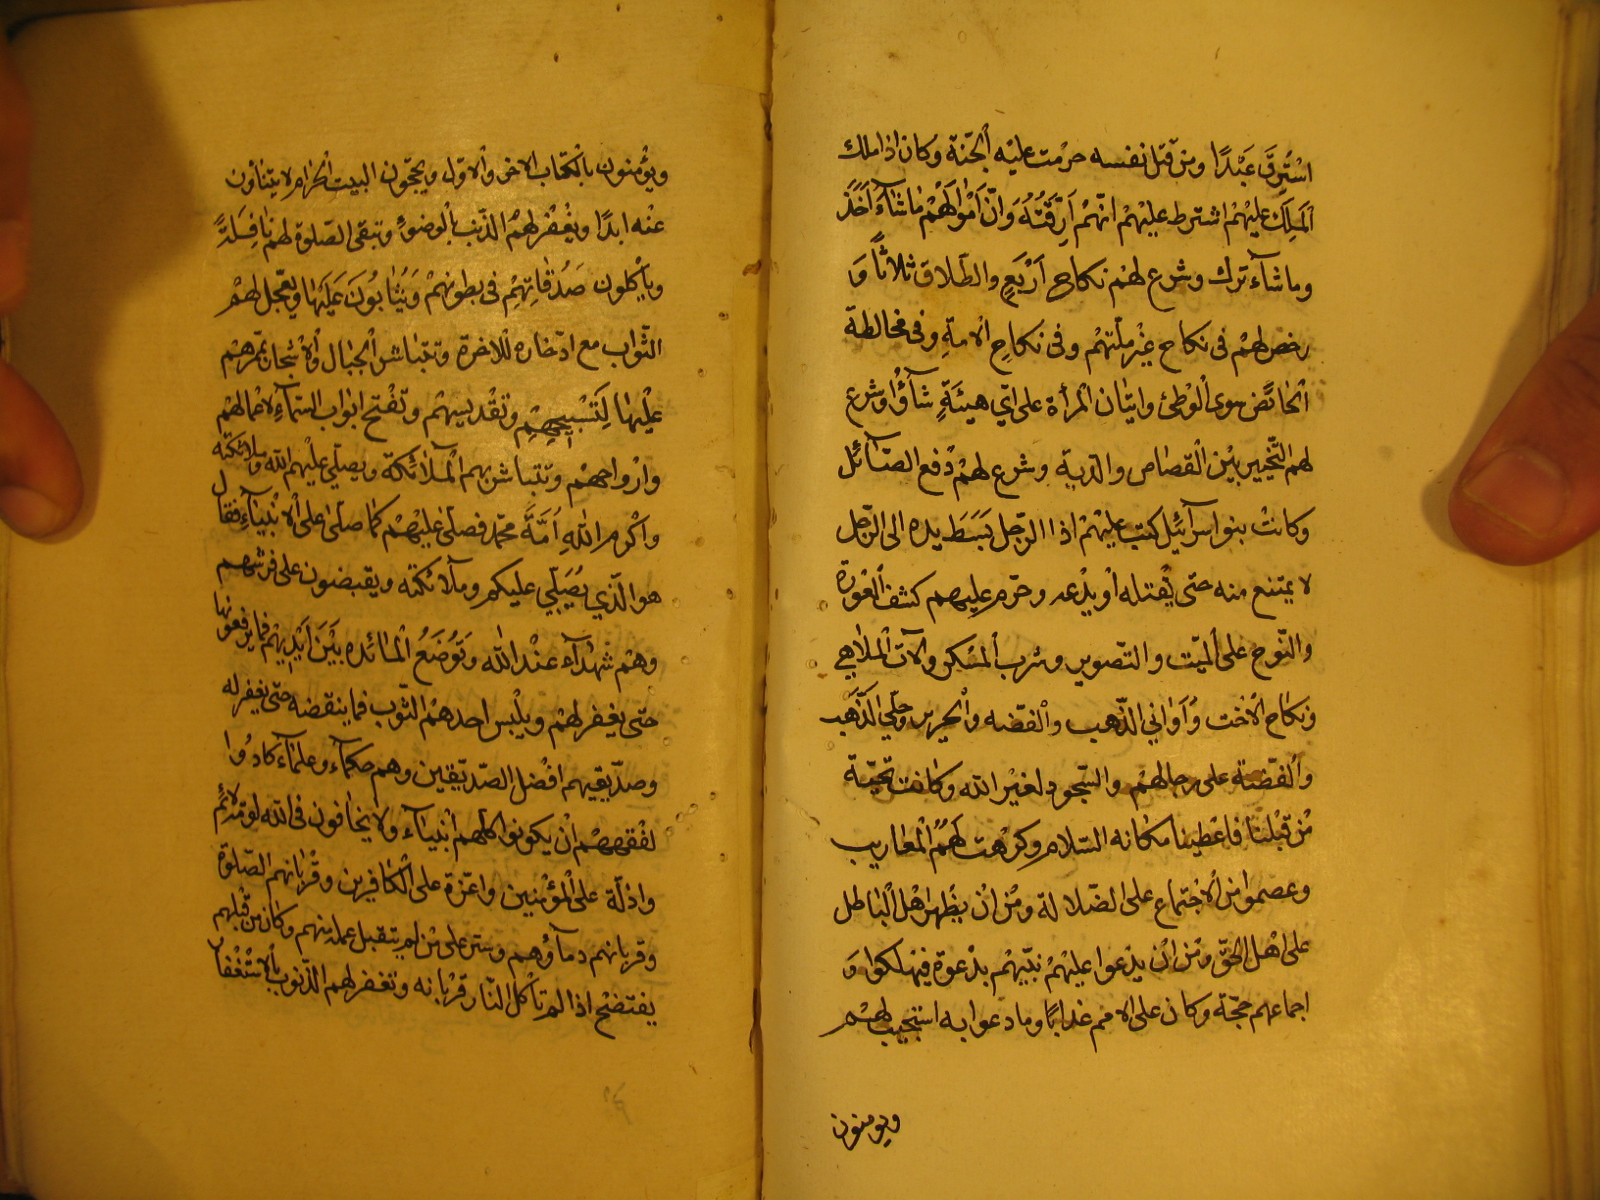 اسْتُرِقَّ عَبْدًا ومن قتل نفسه حرمت عليه الجنة وكان اذا ملك
المَلِك عليهم اشترط عليهم انهم اَرِقَّتُهُ وَانّ اموالهم ما شاءَ اَخَذَ
وما شآء ترك وشرع لهم نكاح اَرْبَعٍ والطّلاق ثلاثاً وَ
رخص لهم فى نكاح غير ملّتهم وفى نكاح الامةِ وفى مخالطة
الحائض سوى الوطئ واتيان المرأة على اي هيئةٍ شآؤا وشرع
لهم التّخيير بين القصاص والدية وشرع لهم دفع الصّآئل
وكانت بنو اسرآئيل كتب عليهم اذا الرّجل بَسَطَ يده الى الرّجل
لا يمتنع منه حتى يقتله أو يدعه وحرّم عليهم كشف العورة
والنّوح على الميّت والتّصوير وشرب المسكر والآت الملاهي
ونكاح الاخت وَاَوَاني الذّهب والفضه والحرير وحلي الذّهب
والفضّة على رجالهم والسّجود لغير الله وكانت تحيّة
من قبلنا فاعطينا مكانه السّلام وكرهت لهم المحاريب
وعصموا من الاجتماع على الضلالة ومن ان يظهر اهل الباطل
على اهل الحقّ ومن ان يدعوا عليهم نبيّهم بدعوة فيهلكوا وَ
اجماعهم حجّة وكان على الامم عذابًا وما دعوا به استجيب لهم
ويومنون
ويؤمنون بالكتاب الاخر والاول ويحجّون البيت الحرام لا يتنأون
عنه ابدًا ويغفر لهم الذّنب بالوضوءِ وتبقى الصّلوة لهم نافِلَةً
ويأكلون صَدَقَاتِهِم فى بطونهم وَيُثَابُونَ عَلَيْهَا ويعجّل لهم
الثّواب مع ادّخاره للاخرة وتتباشر الجبال والاشجار بممرّهم
عليها لِتَسْبِيحِهِمْ وتقديسهم وتفتح ابواب السّمآءِ لاعمالهم
وارواحهم وتتباشر بهم الملآئكة ويصلّي عليهم الله وملائكته
واكرم اللهِ اُمّةَ محمّد فصلّى عليهم كما صلّى على الانبيآءِ فقال
هو الّذي يُصَلِّي عليكم وملآئكته ويقبضون على فرشهم
وهم شهدآء عند الله وَتُوضَعُ المائده بَيْنَ اَيْدِيهْم فما يرفعونها
حتى يغفر لهم ويلبس احدهم الثّوب فما ينقضه حتى يغفر له
وصدّيقيهم افضل الصّدّيقين وهم حكمآء وعلمآء كادُوا
لفقههم انْ يكونوا كلّهم انبيآء ولا يخافون فى الله لومة لائم
واذلّة على المؤمنين واعزة على الكافرين وقربانهم الصّلوة
وقربانهم دمآؤهم وستر على من لم يتقبل عمله منهم وكان من قبلهم
يفتضح اذا لم تأكل النّار قربانه وتغفر لهم الذّنوب بالاستغفا